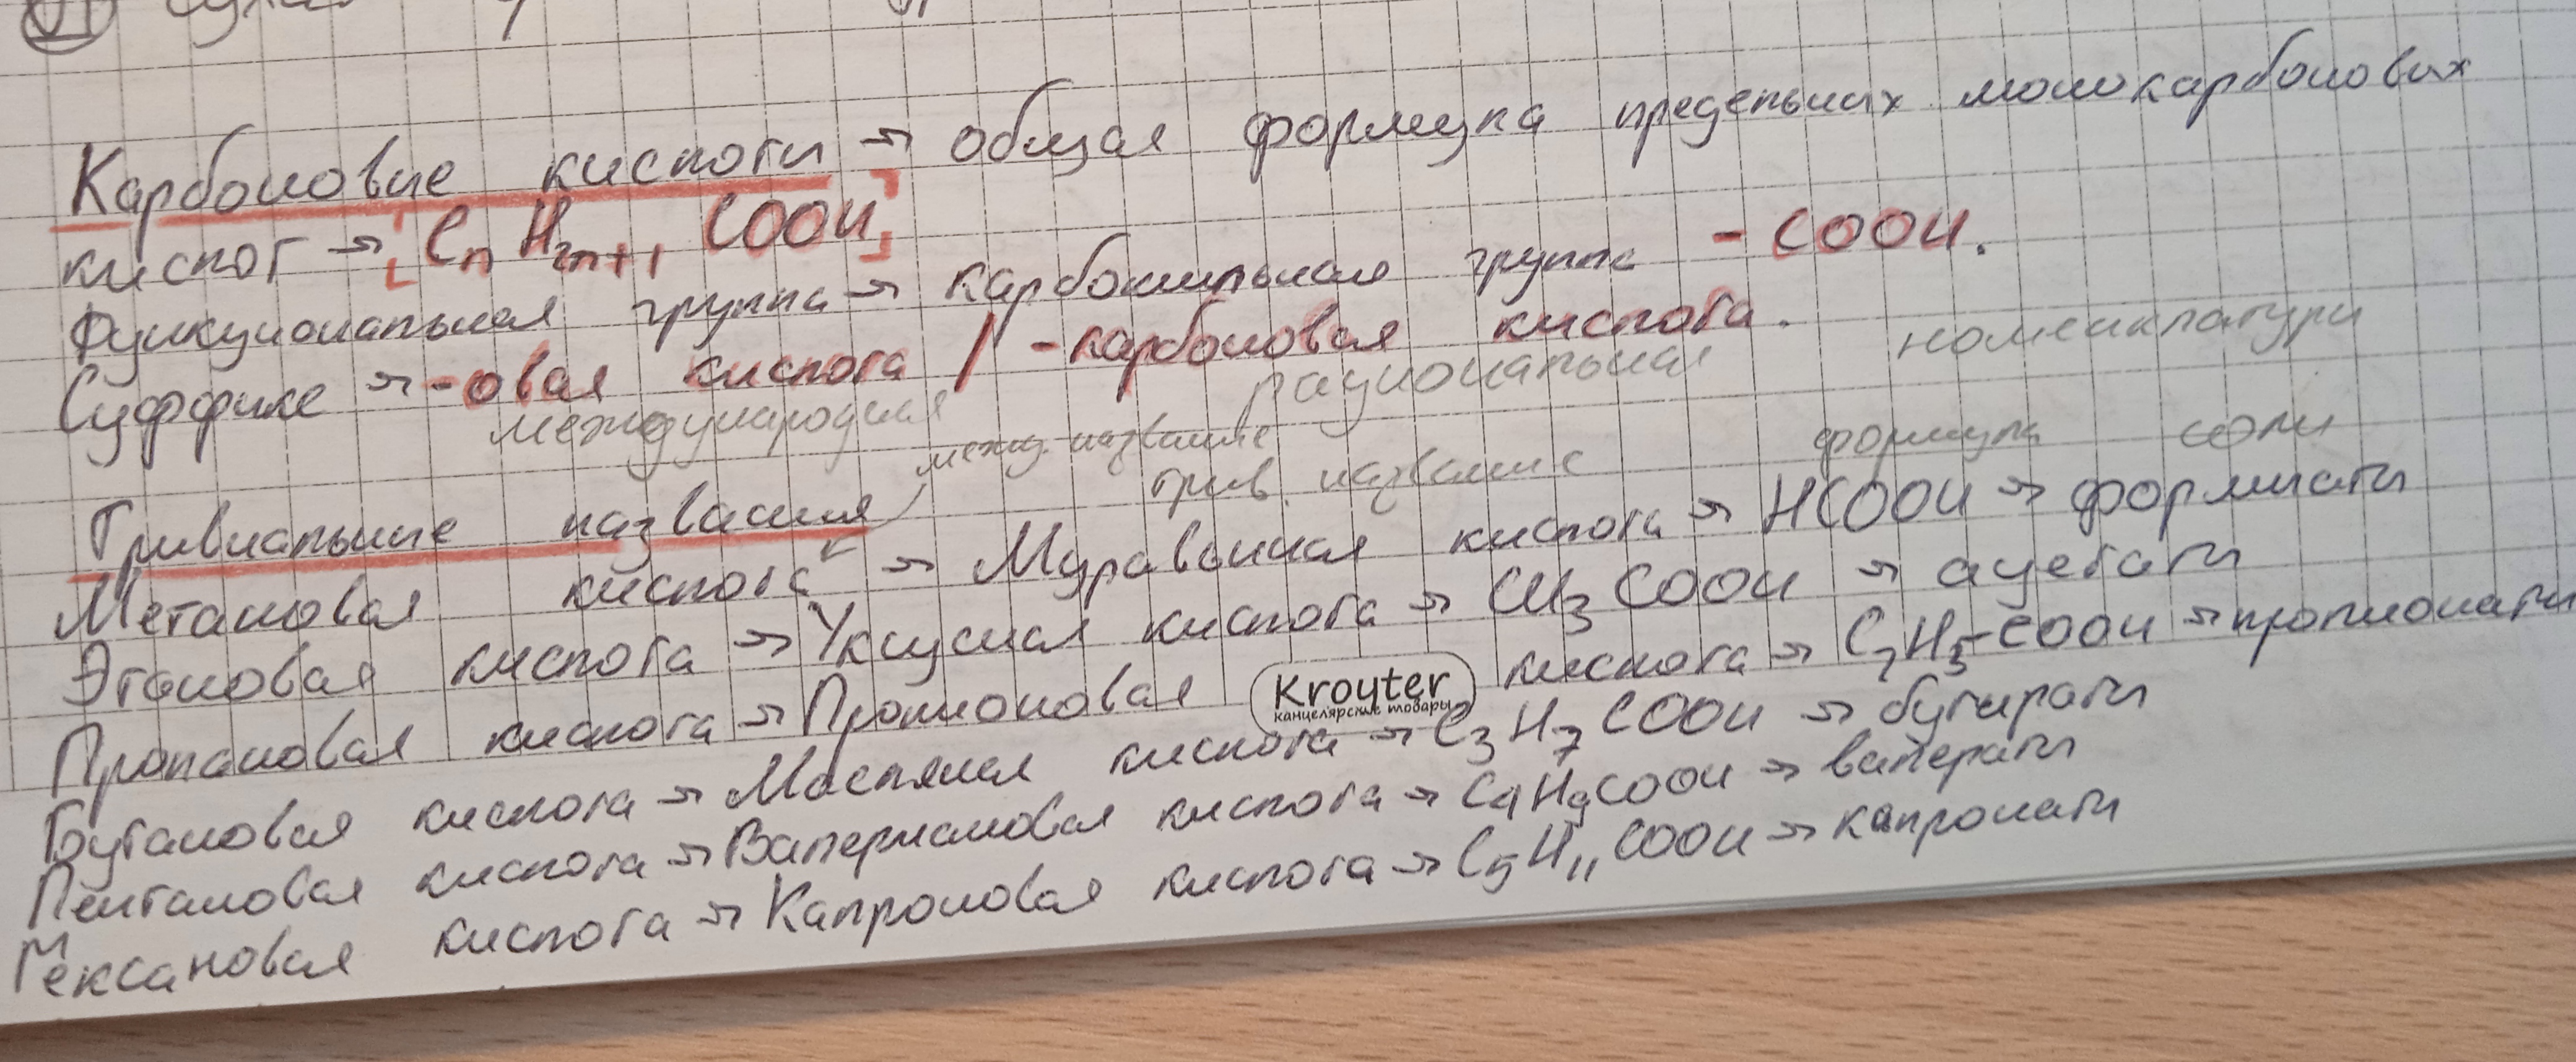 Карбоновые кислоты → общая формула предельных монокарбоновых
кислот → [CnH2n+1COOH]
Функциональная группа → карбоксильная группа -COOH.
Суффикс → -овая кислота / -карбоновая кислота.
международная рациональная номенклатуры
межд. название трив. название формула соли
Тривиальные названия
Метановая кислота → Муравьиная кислота → HCOOH → формиаты
Этановая кислота → Уксусная кислота → CH3COOH → ацетаты
Пропановая кислота → Пропионовая кислота → C2H5-COOH → пропионаты
Kroyter
канцелярские товары
Бутановая кислота → Масляная кислота → C3H7COOH → бутираты
Пентановая кислота → Валериановая кислота → C4H9COOH → валераты
Гексановая кислота → Капроновая кислота → C5H11COOH → капронаты